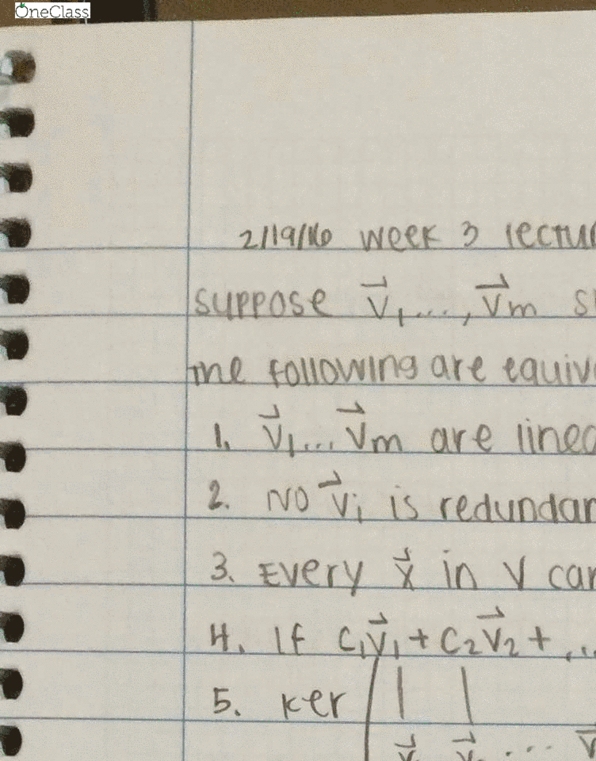 OneClass
2/19/16 Week 3 lectu
suppose v⃗₁..., v⃗m s
the following are equiv
1. v⃗₁... v⃗m are linea
2. NO v⃗i is redundan
3. Every x⃗ in V can
4. If c₁v⃗₁ + c₂v⃗₂ + ...
5. ker | |
v⃗ v⃗ ... v⃗